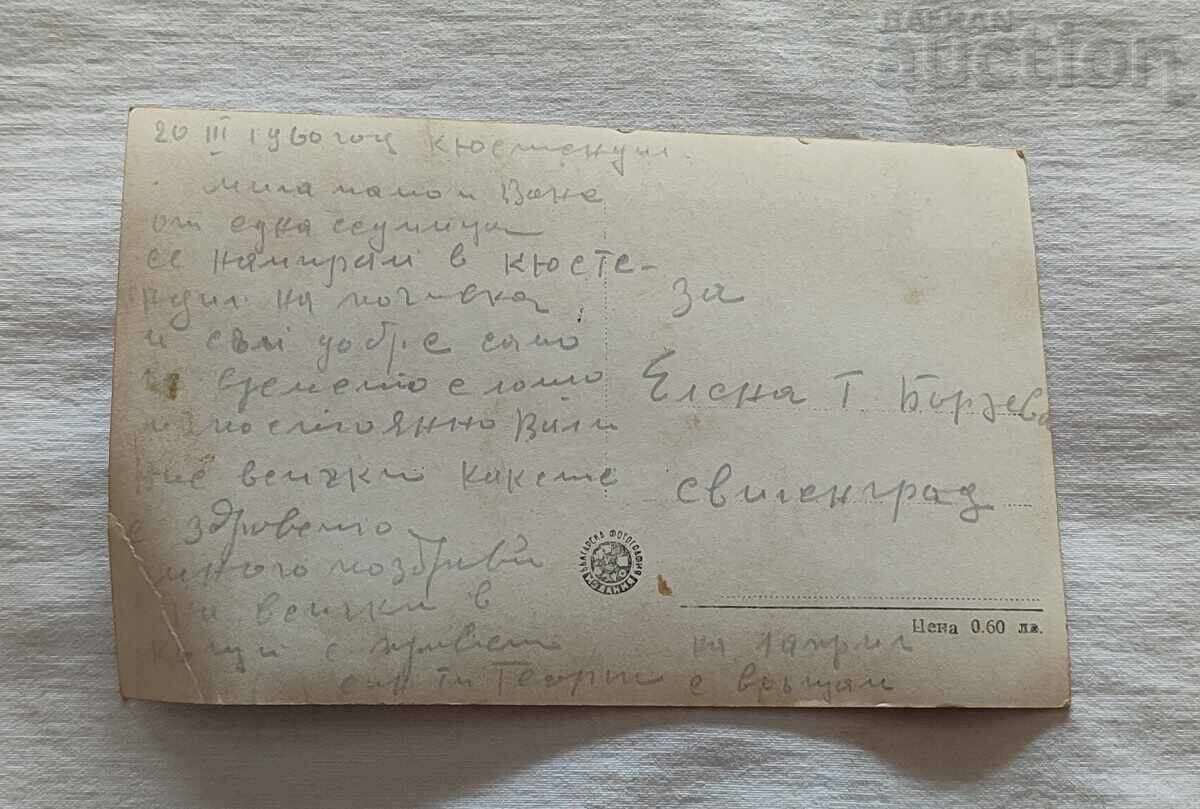 BALKAN
auction
20 III 1960 год Кюстендил.
мила мамо и Ване
от една седмица
се намирам в Кюсте-
ндил на почивка
и съм добре само
че времето е лошо
и постоянно вали
вие всички как сте
с здравето
много поздрави
на всички в
къщи с привет
син ти Георги
на 1 април
се връщам
за
Елена Т Бързева
Свиленград
БЪЛГАРСКА ФОТОГРАФИЯ
ИЗДАНИЯ
Цена 0.60 лв.